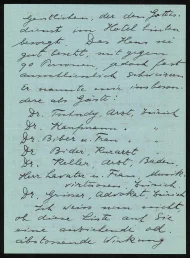 Geistlichen, der den Gottes-
dienst im Hotel hinten
besorgt. Das Haus sei
gut besetzt, mit gegen
90 Personen, jedoch fast
ausschliesslich Schweizern.
er nannte mir insbeson-
dere als Gäste:
Dr. Arzt, Zürich
Dr. Kaufmann "
Dr. Biber u. Frau "
Dr. Bider "
Dr. Keller Arzt, Baden,
Herr Lavater u. Frau, Musik-
virtuosen, Zürich.
Dr. Advokat Zürich
Ich weiss nun nicht
ob diese Liste auf Sie
eine anziehende od.
abstossende Wirkung